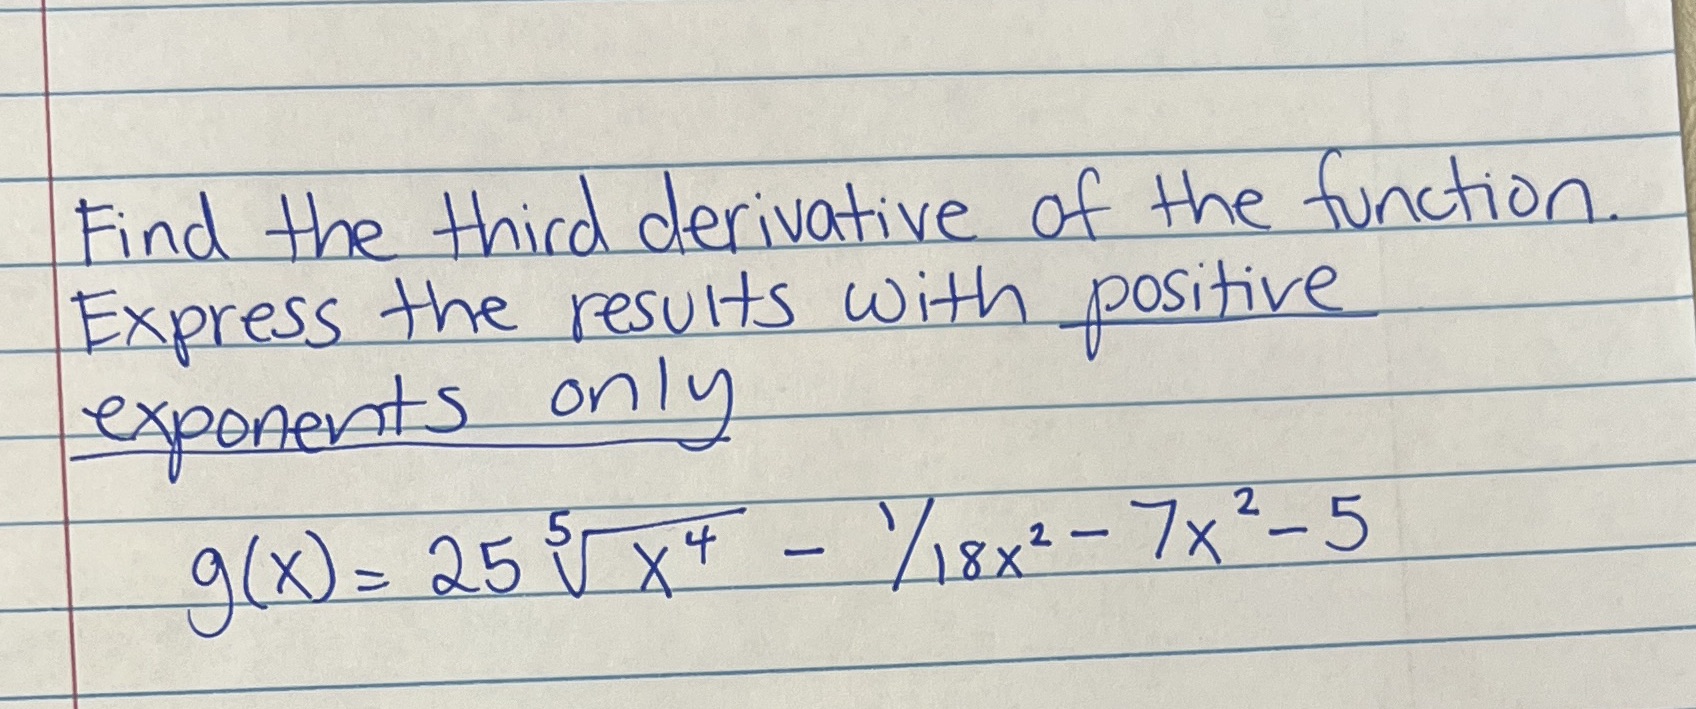 Find the third derivative of the function.
Express the results with positive
exponents only
g(x) = 25 ⁵√x⁴ - 1/18x² - 7x² - 5